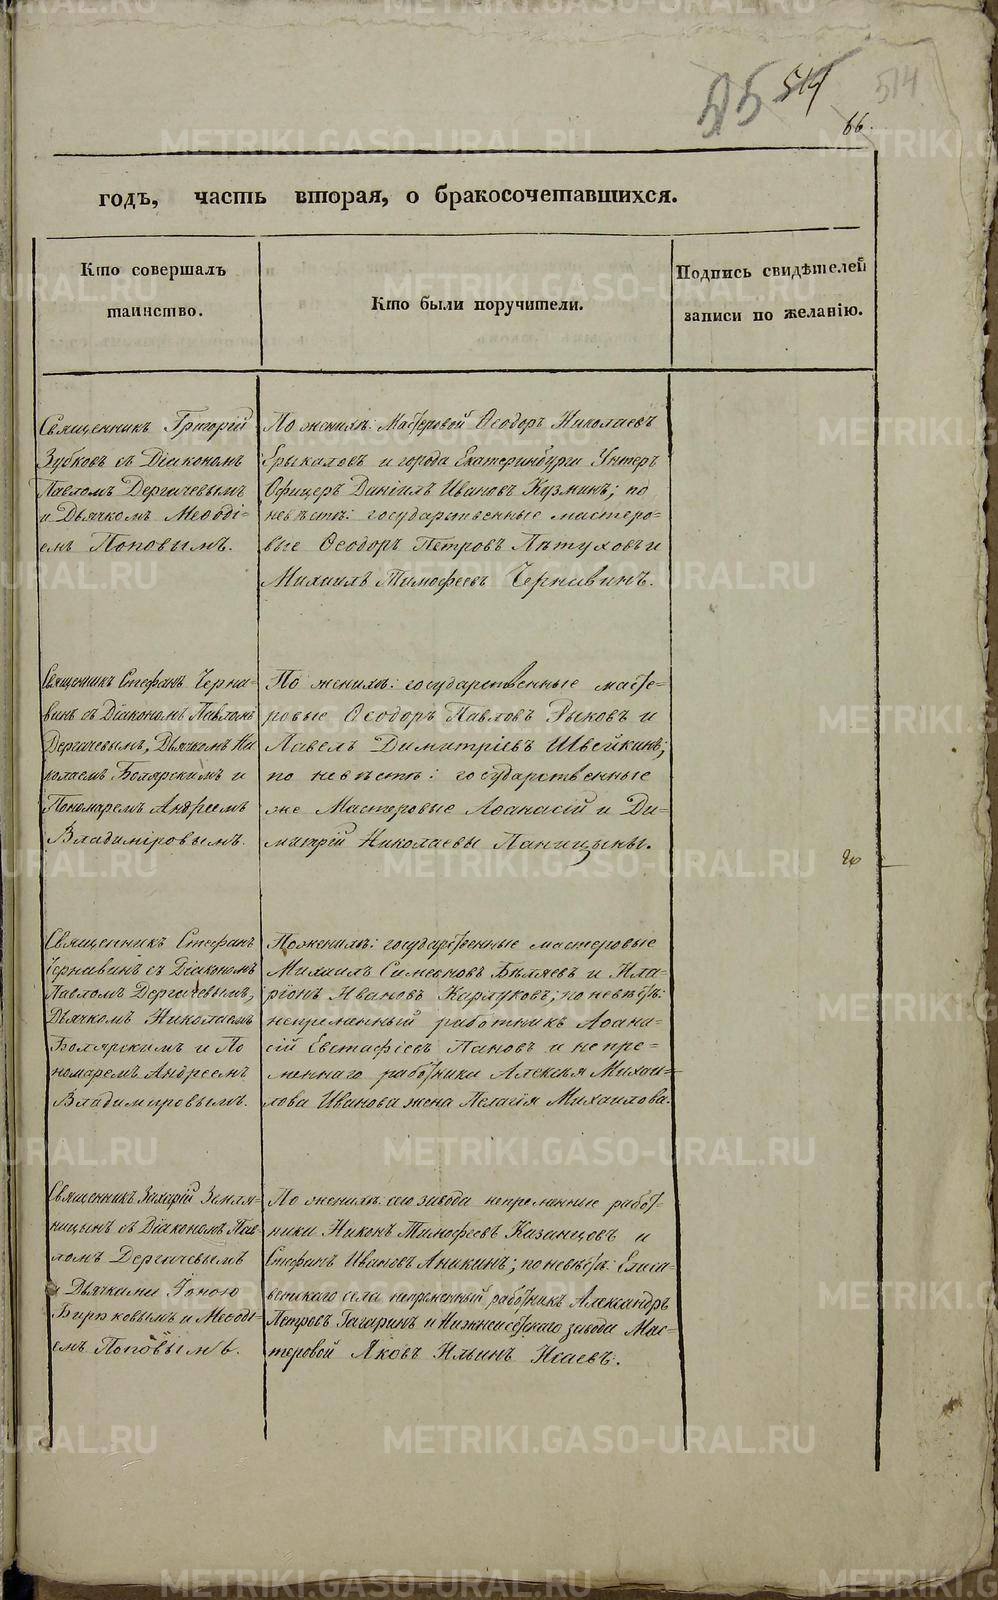 514
514
66.
годъ, часть вторая, о бракосочетавшихся.
Кто совершалъ
таинство.
Кто были поручители.
Подпись свидѣтелей
записи по желанію.
Священникъ Григорій
Зубковъ съ Діакономъ
Павломъ Дергачевымъ
и Дьячкомъ Меѳоді-
емъ Поповымъ.
По женихѣ: Мастеровой Ѳеодоръ Николаевъ
Ерыкаловъ и города Екатеринбурга Унтеръ
Офицеръ Даніилъ Ивановъ Кузминъ; по
невѣстѣ: государственные мастеро-
вые Ѳеодоръ Петровъ Пѣтуховъ и
Михаилъ Тимофеевъ Чернавинъ.
Священникъ Стефанъ Черна-
винъ съ Діакономъ Павломъ
Дергачевымъ, Дьячкомъ Ни
колаемъ Боярскимъ и
Пономаремъ Андреемъ
Владиміровымъ.
По женихѣ: государственные масте-
ровые Ѳеодоръ Павловъ Рыковъ и
Павелъ Димитріевъ Швейкинъ;
по невѣстѣ: государственные
же Мастеровые Аѳанасій и Ди-
митрій Николаевы Паницыны.
Священникъ Стефанъ
Чернавинъ съ Діакономъ
Павломъ Дергачевымъ,
Дьячкомъ Николаемъ
Боярскимъ и По
номаремъ Андреемъ
Владимировымъ.
По женихѣ: государственные мастеровые
Михаилъ Симеоновъ Бѣляевъ и Ила-
ріонъ Ивановъ Карлуковъ; по невѣстѣ:
непременный работникъ Аѳана-
сій Евстафіевъ Пановъ и непре-
меннаго работника Алексія Михаи-
лова Иванова жена Пелагія Михаилова.
Священникъ Захарій Земля-
ницынъ съ Діакономъ Пав-
ломъ Дергачевымъ
и Дьячками Іоною
Бирюковымъ и Меѳоді-
емъ Поповымъ.
По женихѣ: сего завода непременные работ-
ники Никонъ Тимофеевъ Казанцовъ и
Стефанъ Ивановъ Аникинъ; по невѣстѣ: Елиса-
ветскаго села непременный работникъ Александръ
Петровъ Гагаринъ и Нижнеисетскаго завода Мас-
теровой Яковъ Ильинъ Исаевъ.
METRIKI.GASO-URAL.RU